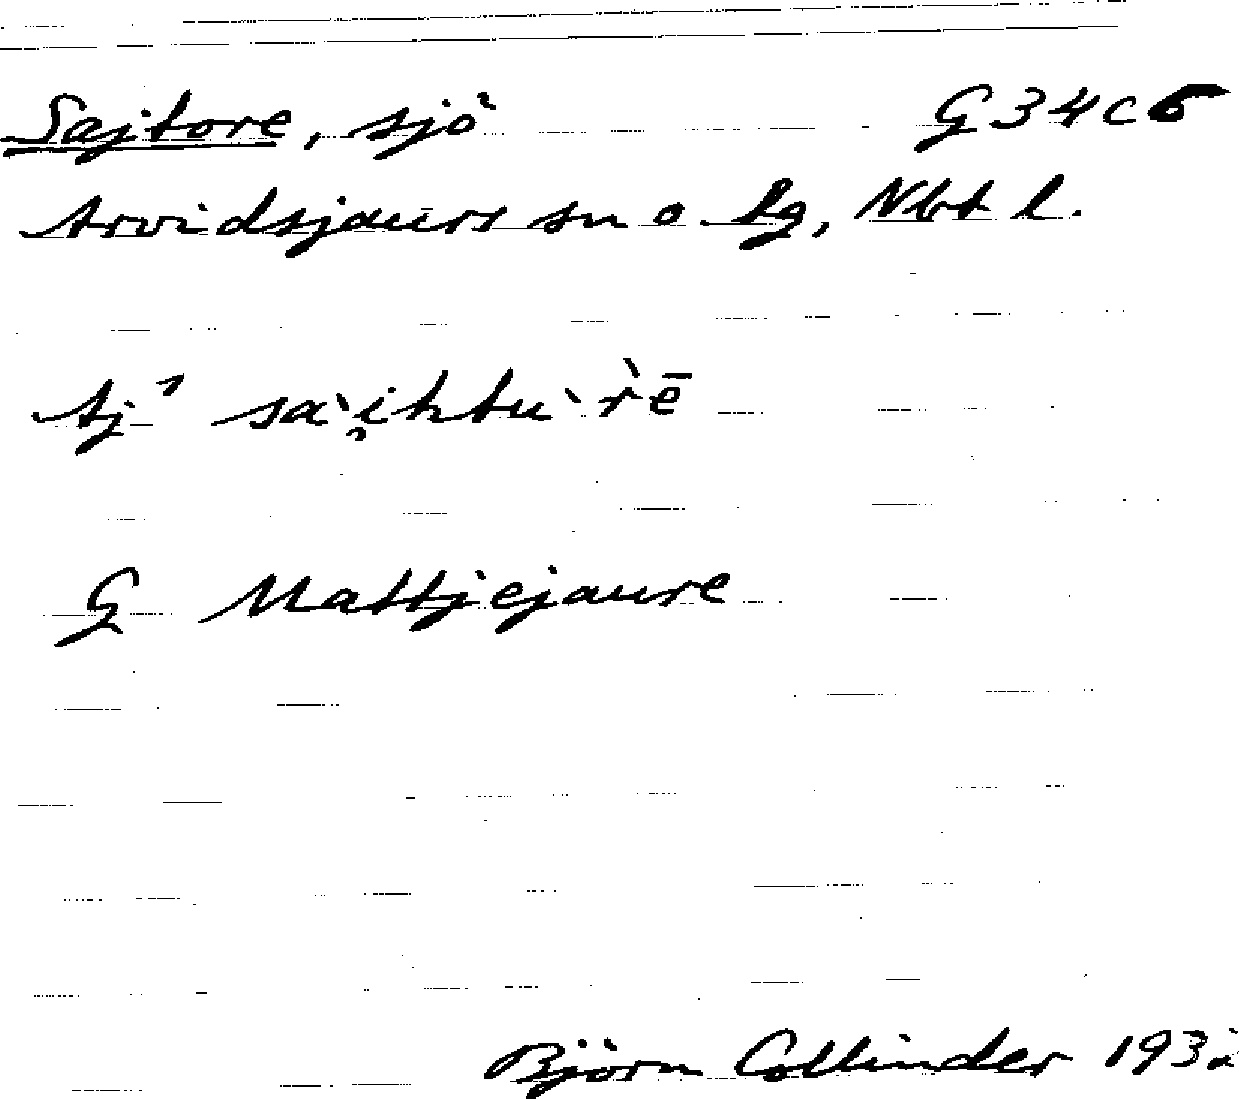 Sajtore, sjö G34c6
Arvidsjaurs sn o lg, Nbt l.
Aj¹ sa`i̯htu`r̀ē
G Mattjejaure
Björn Collinder 1932